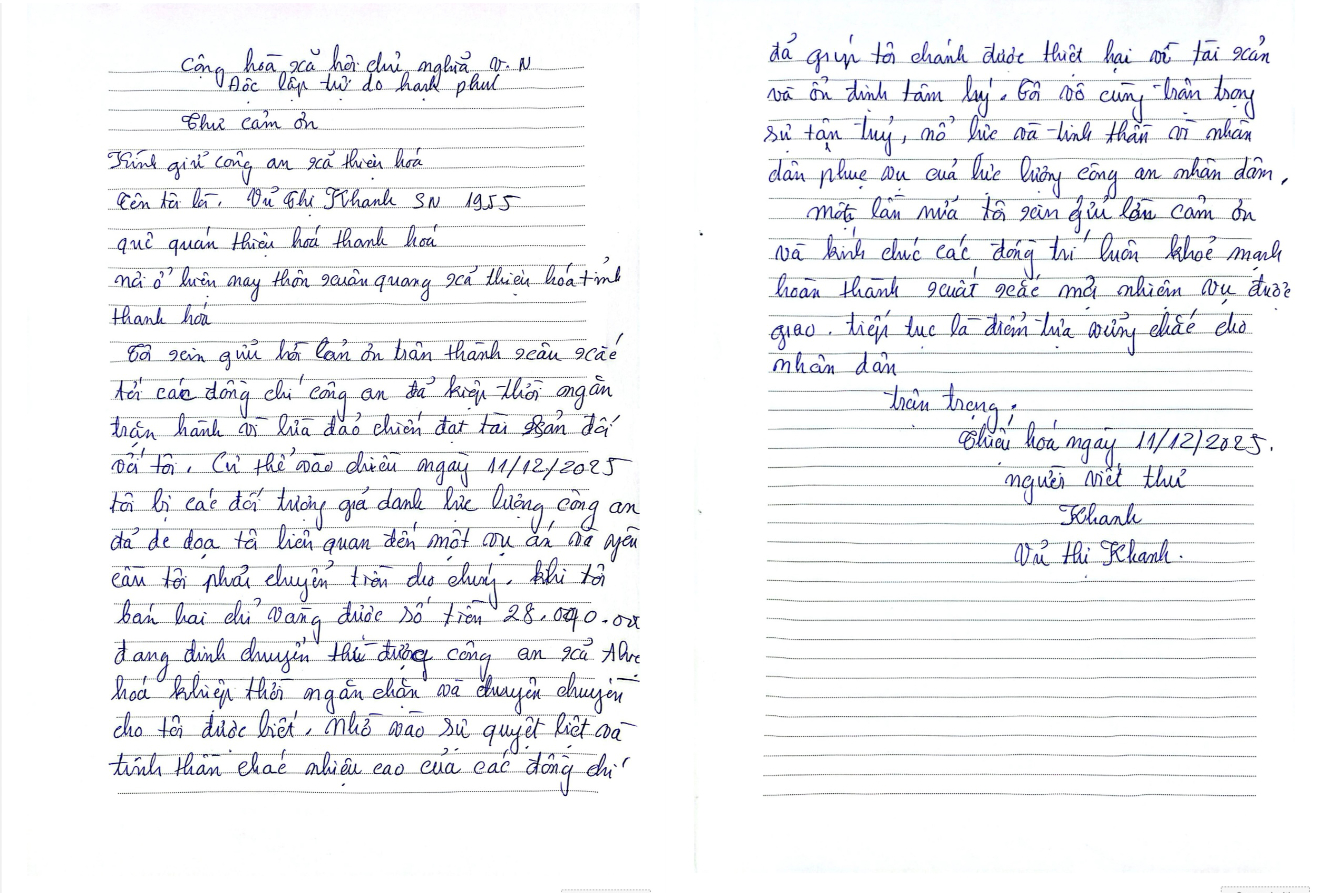 Cộng hoà xã hội chủ nghĩa V.N
Độc lập tự do hạnh phúc
Thư cảm ơn
Kính giử công an xã thiệu hoá
Tên tôi là. Vũ Thị Khanh SN 1955
quê quán thiệu hoá thanh hoá
nơi ở hiện nay thôn xuân quang xã thiệu hoá tỉnh
thanh hoá
Tôi xin gửi lời cản ơn trân thành sâu sắc
tới các đồng chí công an đã kiệp thời ngăn
trặn hành vi lừa đảo chiến đạt tài sản đối
với tôi. Cụ thể vào chiều ngày 11/12/2025
tôi bị các đối tượng giả danh lực lượng công an
đã đe doạ tôi liên quan đến một vụ án và yêu
cầu tôi phải chuyển tiền cho chúng. khi tôi
bán hai chỉ vàng được số tiền
đang định chuyển thì được công an xã
hoá khiệp thời ngăn chặn và chuyên chuyền
cho tôi được biết, Nhờ vào sự quyết liệt và
tinh thần chác nhiệm cao của các đồng chí
đã giúp tôi chánh được thiệt hại về tài xản
và ổn định tâm lý. Tôi vô cùng trân trọng
sự tận tuỵ, nổ lực và tinh thần vì nhân
dân phục vụ của lực lượng công an nhân dân,
một lần nữa tôi xin gửi lần cảm ơn
và kính chúc các đồng trí luôn khoẻ mạnh
hoàn thành xuất xắc mọi nhiệm vụ được
giao. tiếp tục là điểm tựa vững chắc cho
nhân dân
trân trọng.
Thiệu hoá ngày 11/12/2025.
người viết thư
Khanh
Vũ thị Khanh.